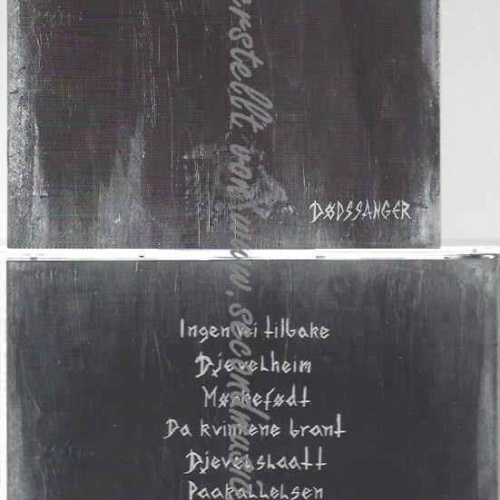 DØDSSANGER
Ingen vei tilbake
Djevelheim
Mørkefødt
Da kvinnene brant
Djevelslaatt
Paakallelsen
erstellt von www.secondhand